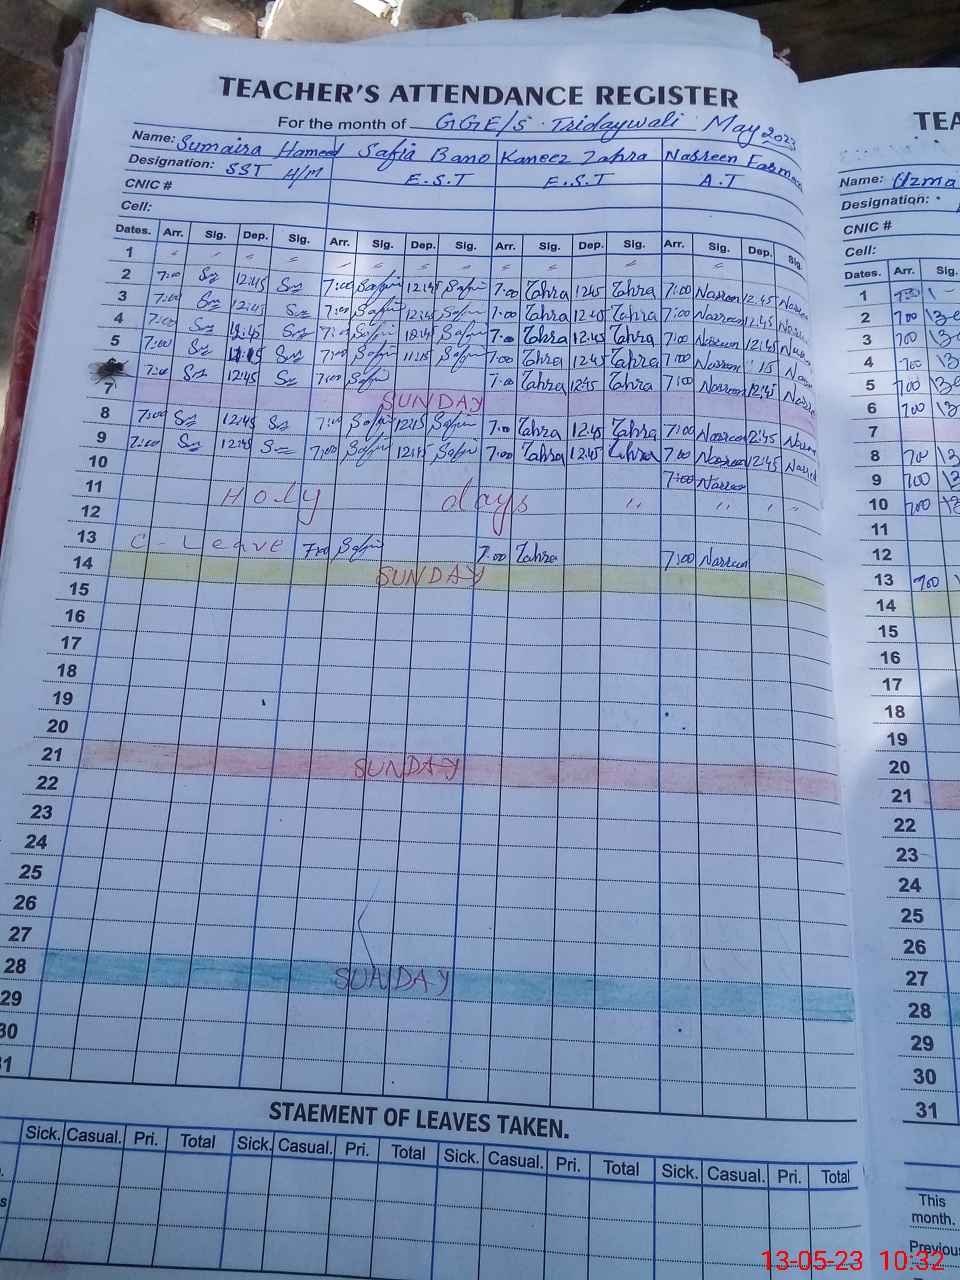 TEACHER'S ATTENDANCE REGISTER
For the month of GGE/S Tridaywali May 2023
Name: Sumaira Hameed Safia Bano Kaneez Zahra Nasreen Farman
Designation: SST H/M E.S.T E.S.T A.T
CNIC #
Cell:
Dates. Arr. Sig. Dep. Sig. Arr. Sig. Dep. Sig. Arr. Sig. Dep. Sig. Arr. Sig. Dep. Sig.
1 " " " " " " " " " " " "
2 7:00 12:45 7:00 Safia 12:45 Safia 7:00 Zahra 1245 Zahra 7:00 Nasreen 12:45
3 7:00 12:45 7:00 Safia 12:45 Safia 7:00 Zahra 12:45 Zahra 7:00 Nasreen 12:45
4 7:00 12:45 7:00 Safia 12:45 Safia 7:00 Zahra 12:45 Zahra 7:00 Nasreen 12:45
5 7:00 7:00 Safia Safia 7:00 Zahra 12:45 Zahra 7:00 Nasreen
7:00 12:45 7:00 Safia 7:00 Zahra 12:45 Zahra 7:00 Nasreen 12:45
7 SUNDAY
8 7:00 12:45 7:00 Safia 12:45 Safia 7:00 Zahra 12:45 Zahra 7:00 Nasreen 12:45
9 7:00 12:45 7:00 Safia 12:45 Safia 7:00 Zahra 12:45 Zahra 7:00 Nasreen 12:45
10 7:00 Nasreen
11 Holy days " " " "
12
13 C-Leave 7:00 Safia 7:00 Zahra 7:00 Nasreen
14 SUNDAY
15
16
17
18
19
20
21 SUNDAY
22
23
24
25
26
27
28 SUNDAY
29
30
31
STAEMENT OF LEAVES TAKEN.
Sick. Casual. Pri. Total Sick. Casual. Pri. Total Sick. Casual. Pri. Total Sick. Casual. Pri. Total
TEA
Name: Uzma
Designation:
CNIC #
Cell:
Dates. Arr. Sig.
1
2 700
3 700
4 700
5 700
6 700
7
8 700
9 700
10 700
11
12
13 700
14
15
16
17
18
19
20
21
22
23
24
25
26
27
28
29
30
31
This
month.
Previous
13-05-23 10:32